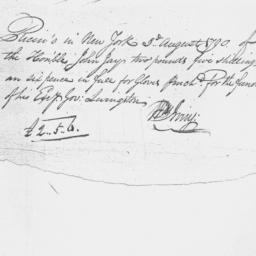 Receiv'd in New York 3d August 1790 of
the Honble. John Jay, two pounds five shillings
an six pence in full for Gloves furchd. for the funeral
of his Excy. Gov: Livingston
£2..5..6.